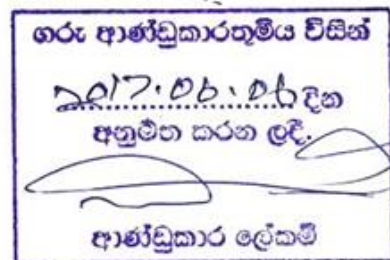 ගරු ආණ්ඩුකාරතුමිය විසින්
2017.06.06 දින
අනුමත කරන ලදී.
ආණ්ඩුකාර ලේකම්